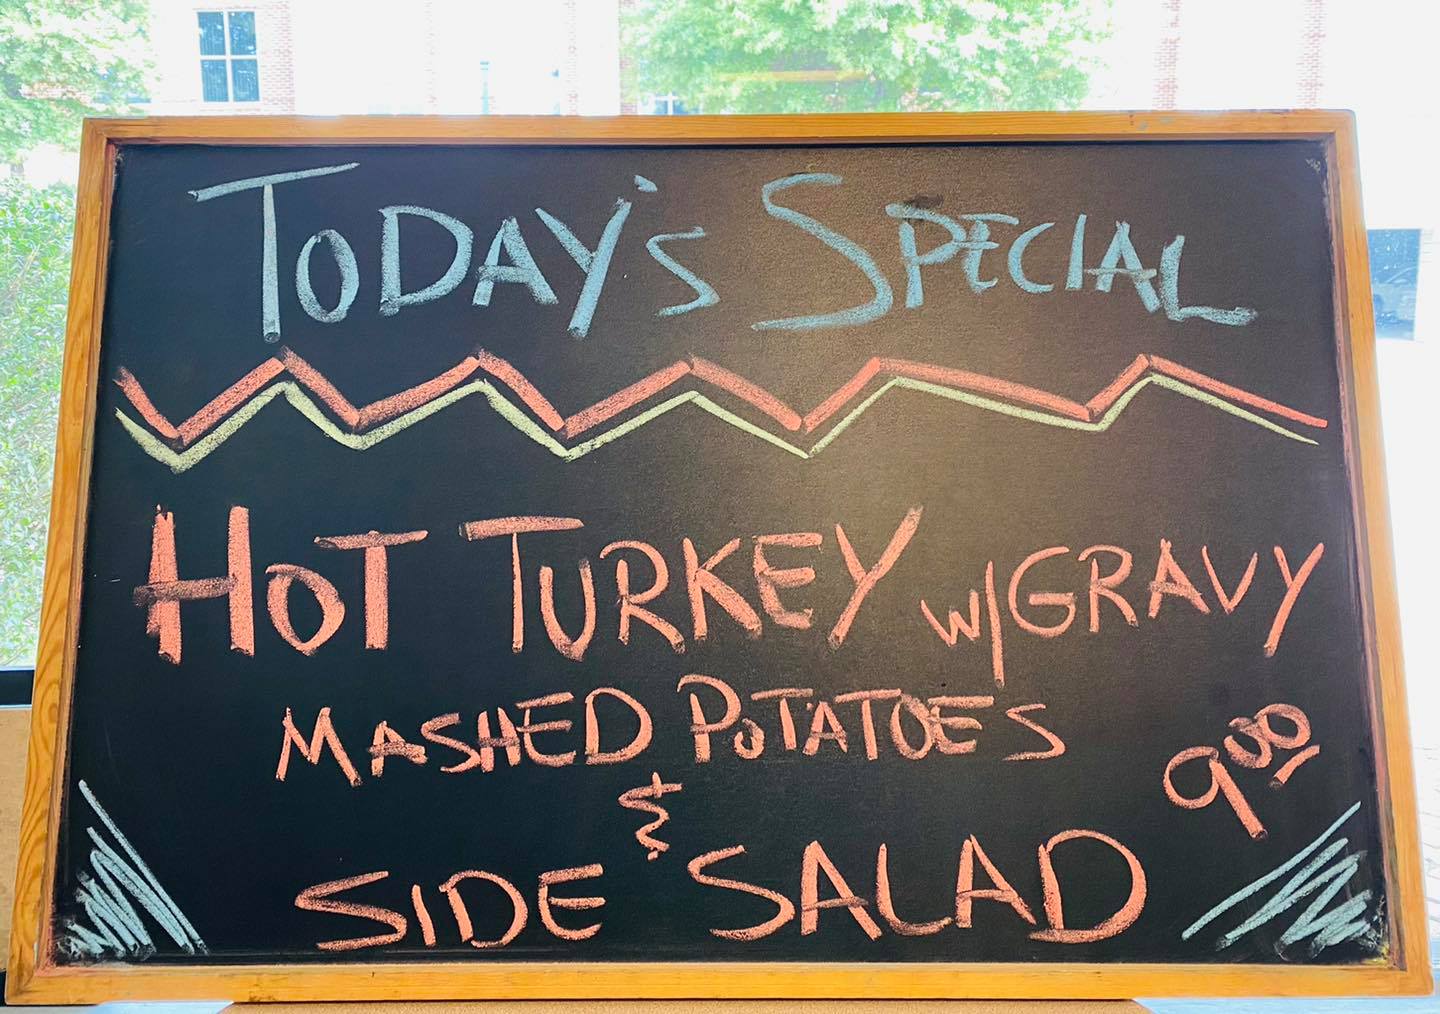 TODAY's SPECIAL
HOT TURKEY w/GRAVY
MASHED POTATOES
9.00
&
SIDE SALAD